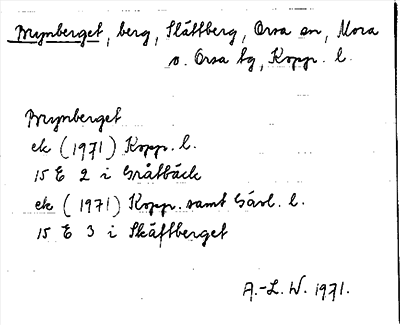 Brynberget, berg, Slättberg, Orsa sn, Mora
o. Orsa tg, Kopp. l.
Brynberget
ek (1971) Kopp. l.
15 E 2 i Gråtbäck
ek (1971) Kopp. samt Gävl. l.
15 E 3 i Skäftberget
A.-L. W. 1971.